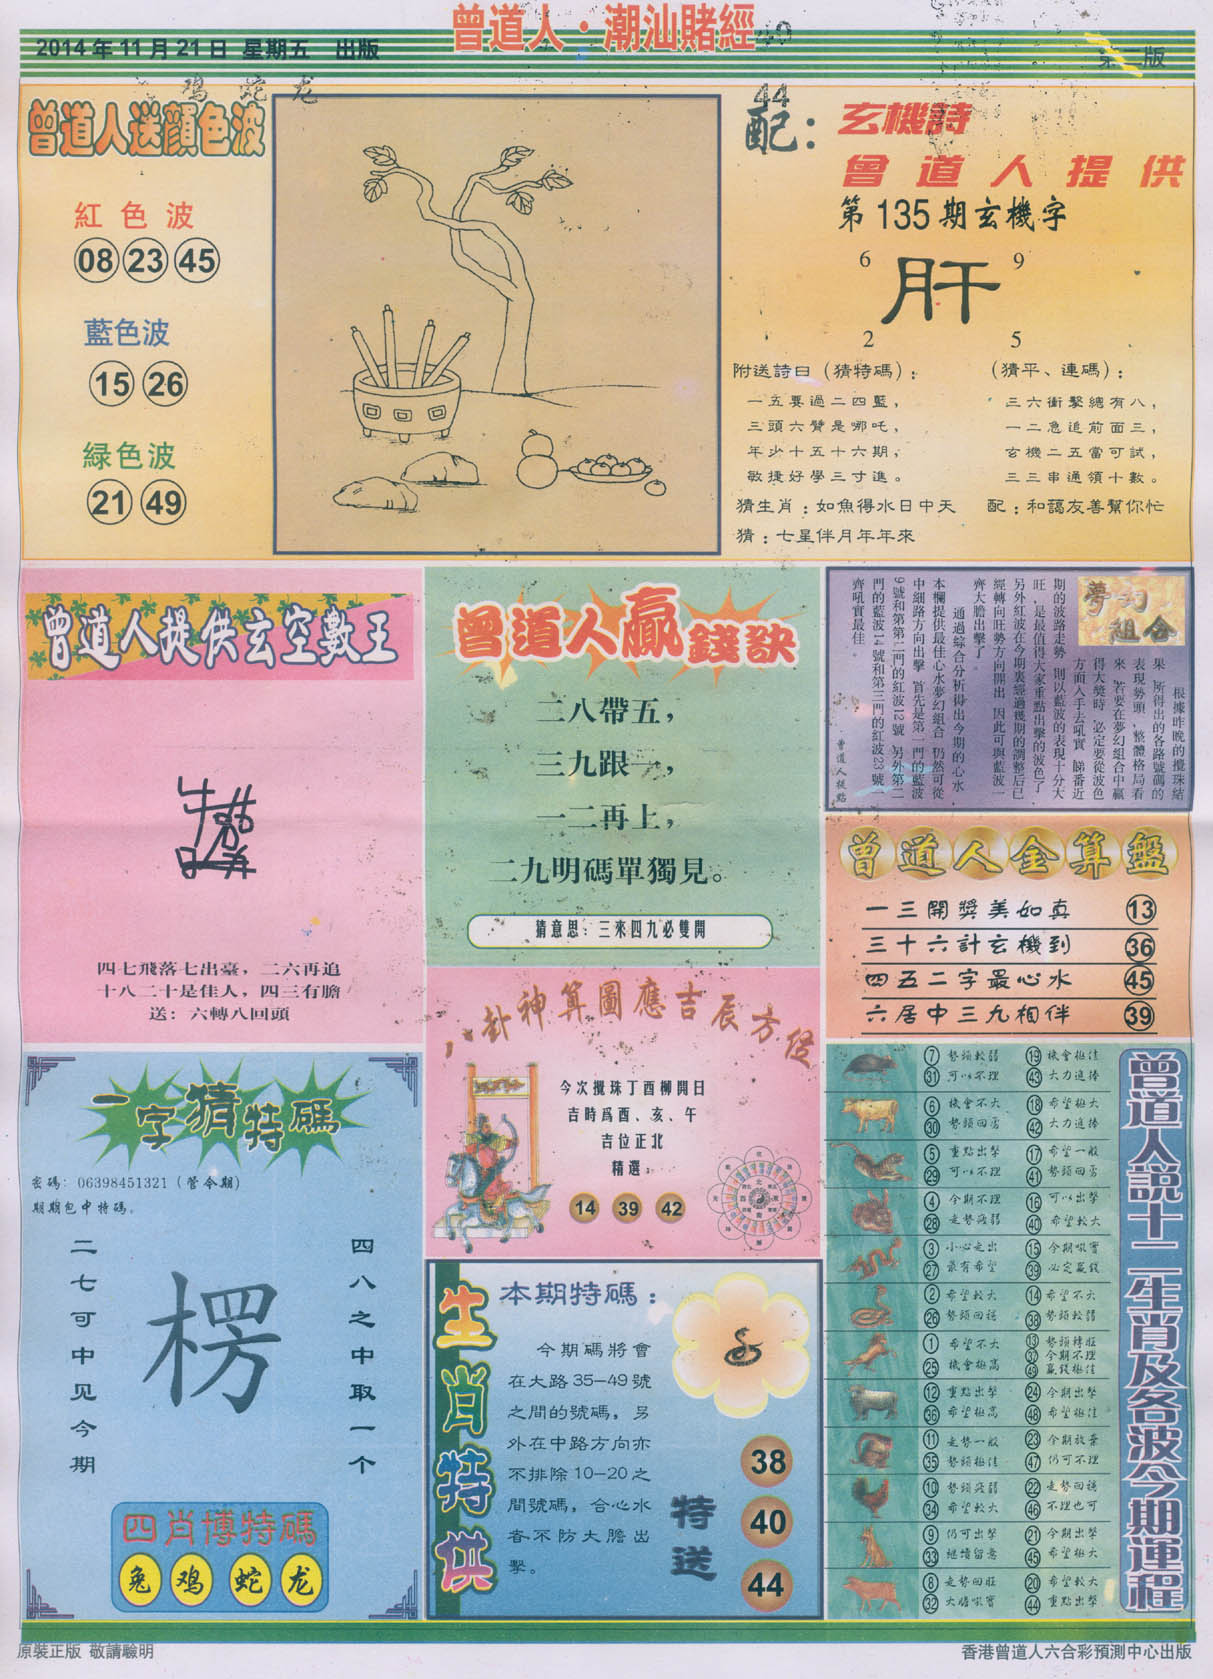 曾道人·潮汕賭經
2014年11月21日 星期五 出版
第二版
鸡 蛇 龙
曾道人送顔色波
紅色波
08 23 45
藍色波
15 26
緑色波
21 49
44
配：
玄機詩
曾道人提供
第135期玄機字
6 9
肝
2 5
附送詩曰（猜特碼）：
一五要過二四藍，
三頭六臂是哪吒，
年少十五十六期，
敏捷好學三寸進。
（猜平、連碼）：
三六衝擊總有八，
一二急追前面三，
玄機二五當可試，
三三串通領十數。
猜生肖：如魚得水日中天
配：和謁友善幫你忙
猜：七星伴月年年來
曾道人提供玄空數王
四七飛落七出臺，二六再追
十八二十是佳人，四三有膽
送：六轉八回頭
曾道人贏錢訣
二八帶五，
三九跟一，
一二再上，
二九明碼單獨見。
猜意思：三來四九必雙開
夢幻組合
根據昨晚的攪珠結
果，所得出的各路號碼的
表現勢頭，整體格局看
來，若要在夢幻組合中贏
得大獎時，必定要從波色
方面入手去吼實，睇番近
期的波路走勢，則以藍波的表現十分大
旺，是最值得大家重點出擊的波色了，
另外紅波在今期裏經過幾期的調整后已
經轉向旺勢方向開出，因此可與藍波一
齊大膽出擊了。
通過綜合分析得出今期的心水，
本欄提供最佳心水夢幻組合，仍然可從
中細路方向出擊，首先是第一門的藍波
9號和第第二門的紅波12號，另外第二
門的藍波14號和第三門的紅波23號一
齊吼實最佳。
曾道人提點
曾道人金算盤
一三開獎美如真 13
三十六計玄機到 36
四五二字最心水 45
六居中三九相伴 39
八卦神算圖應吉辰方從
今次攪珠丁酉柳開日
吉時爲酉、亥、午
吉位正北
精選：
14 39 42
一字猜特碼
密碼：06398451321（管令期）
期期包中特碼。
四八之中取一个
楞
二七可中见今期
四肖博特碼
兔 鸡 蛇 龙
生肖特供
本期特碼：
今期碼將會
在大路35—49號
之間的號碼，另
外在中路方向亦
不排除10—20之
間號碼，合心水
者不防大膽出
擊。
特送
38
40
44
曾道人説十二生肖及各波今期運程
7 勢頭較弱 19 機會極佳
31 可以不理 43 大力追捧
6 機會不大 18 希望極大
30 勢頭回勇 42 大力追捧
5 重點出擊 17 希望一般
29 可以不理 41 勢頭回勇
4 今期不理 16 可以出擊
28 走勢疲弱 40 希望較大
3 小心走出 15 今期吼實
27 最有希望 39 必定贏錢
2 希望較大 14 希望不大
26 勢頭回穩 38 勢頭較弱
1 希望不大 13 勢頭轉旺
37 今期不理
25 機會極高 49 贏錢極佳
12 重點出擊 24 今期出擊
36 希望極高 48 希望極佳
11 走勢一般 23 今期放棄
35 勢頭極佳 47 仍可不理
10 勢頭疲弱 22 走勢回穩
34 希望較大 46 不理也可
9 仍可出擊 21 今期出擊
33 繼續留意 45 希望極大
8 走勢回旺 20 希望較大
32 大膽吼實 44 重點出擊
原裝正版 敬請驗明
香港曾道人六合彩預測中心出版